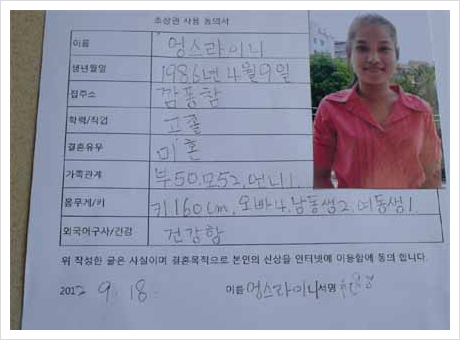 초상권 사용 동의서
이름 엉스라이니
생년월일 1986년 4월 9일
집주소 깜퐁참
학력/직업 고졸
결혼유무 미혼
가족관계 부50, 모52, 언니1.
몸무게/키 키160cm, 오빠4, 남동생2, 여동생1.
외국어구사/건강 건강함
위 작성한 글은 사실이며 결혼목적으로 본인의 신상을 인터넷에 이용함에 동의 합니다.
2012 9. 18. 이름 엉스라이니 서명